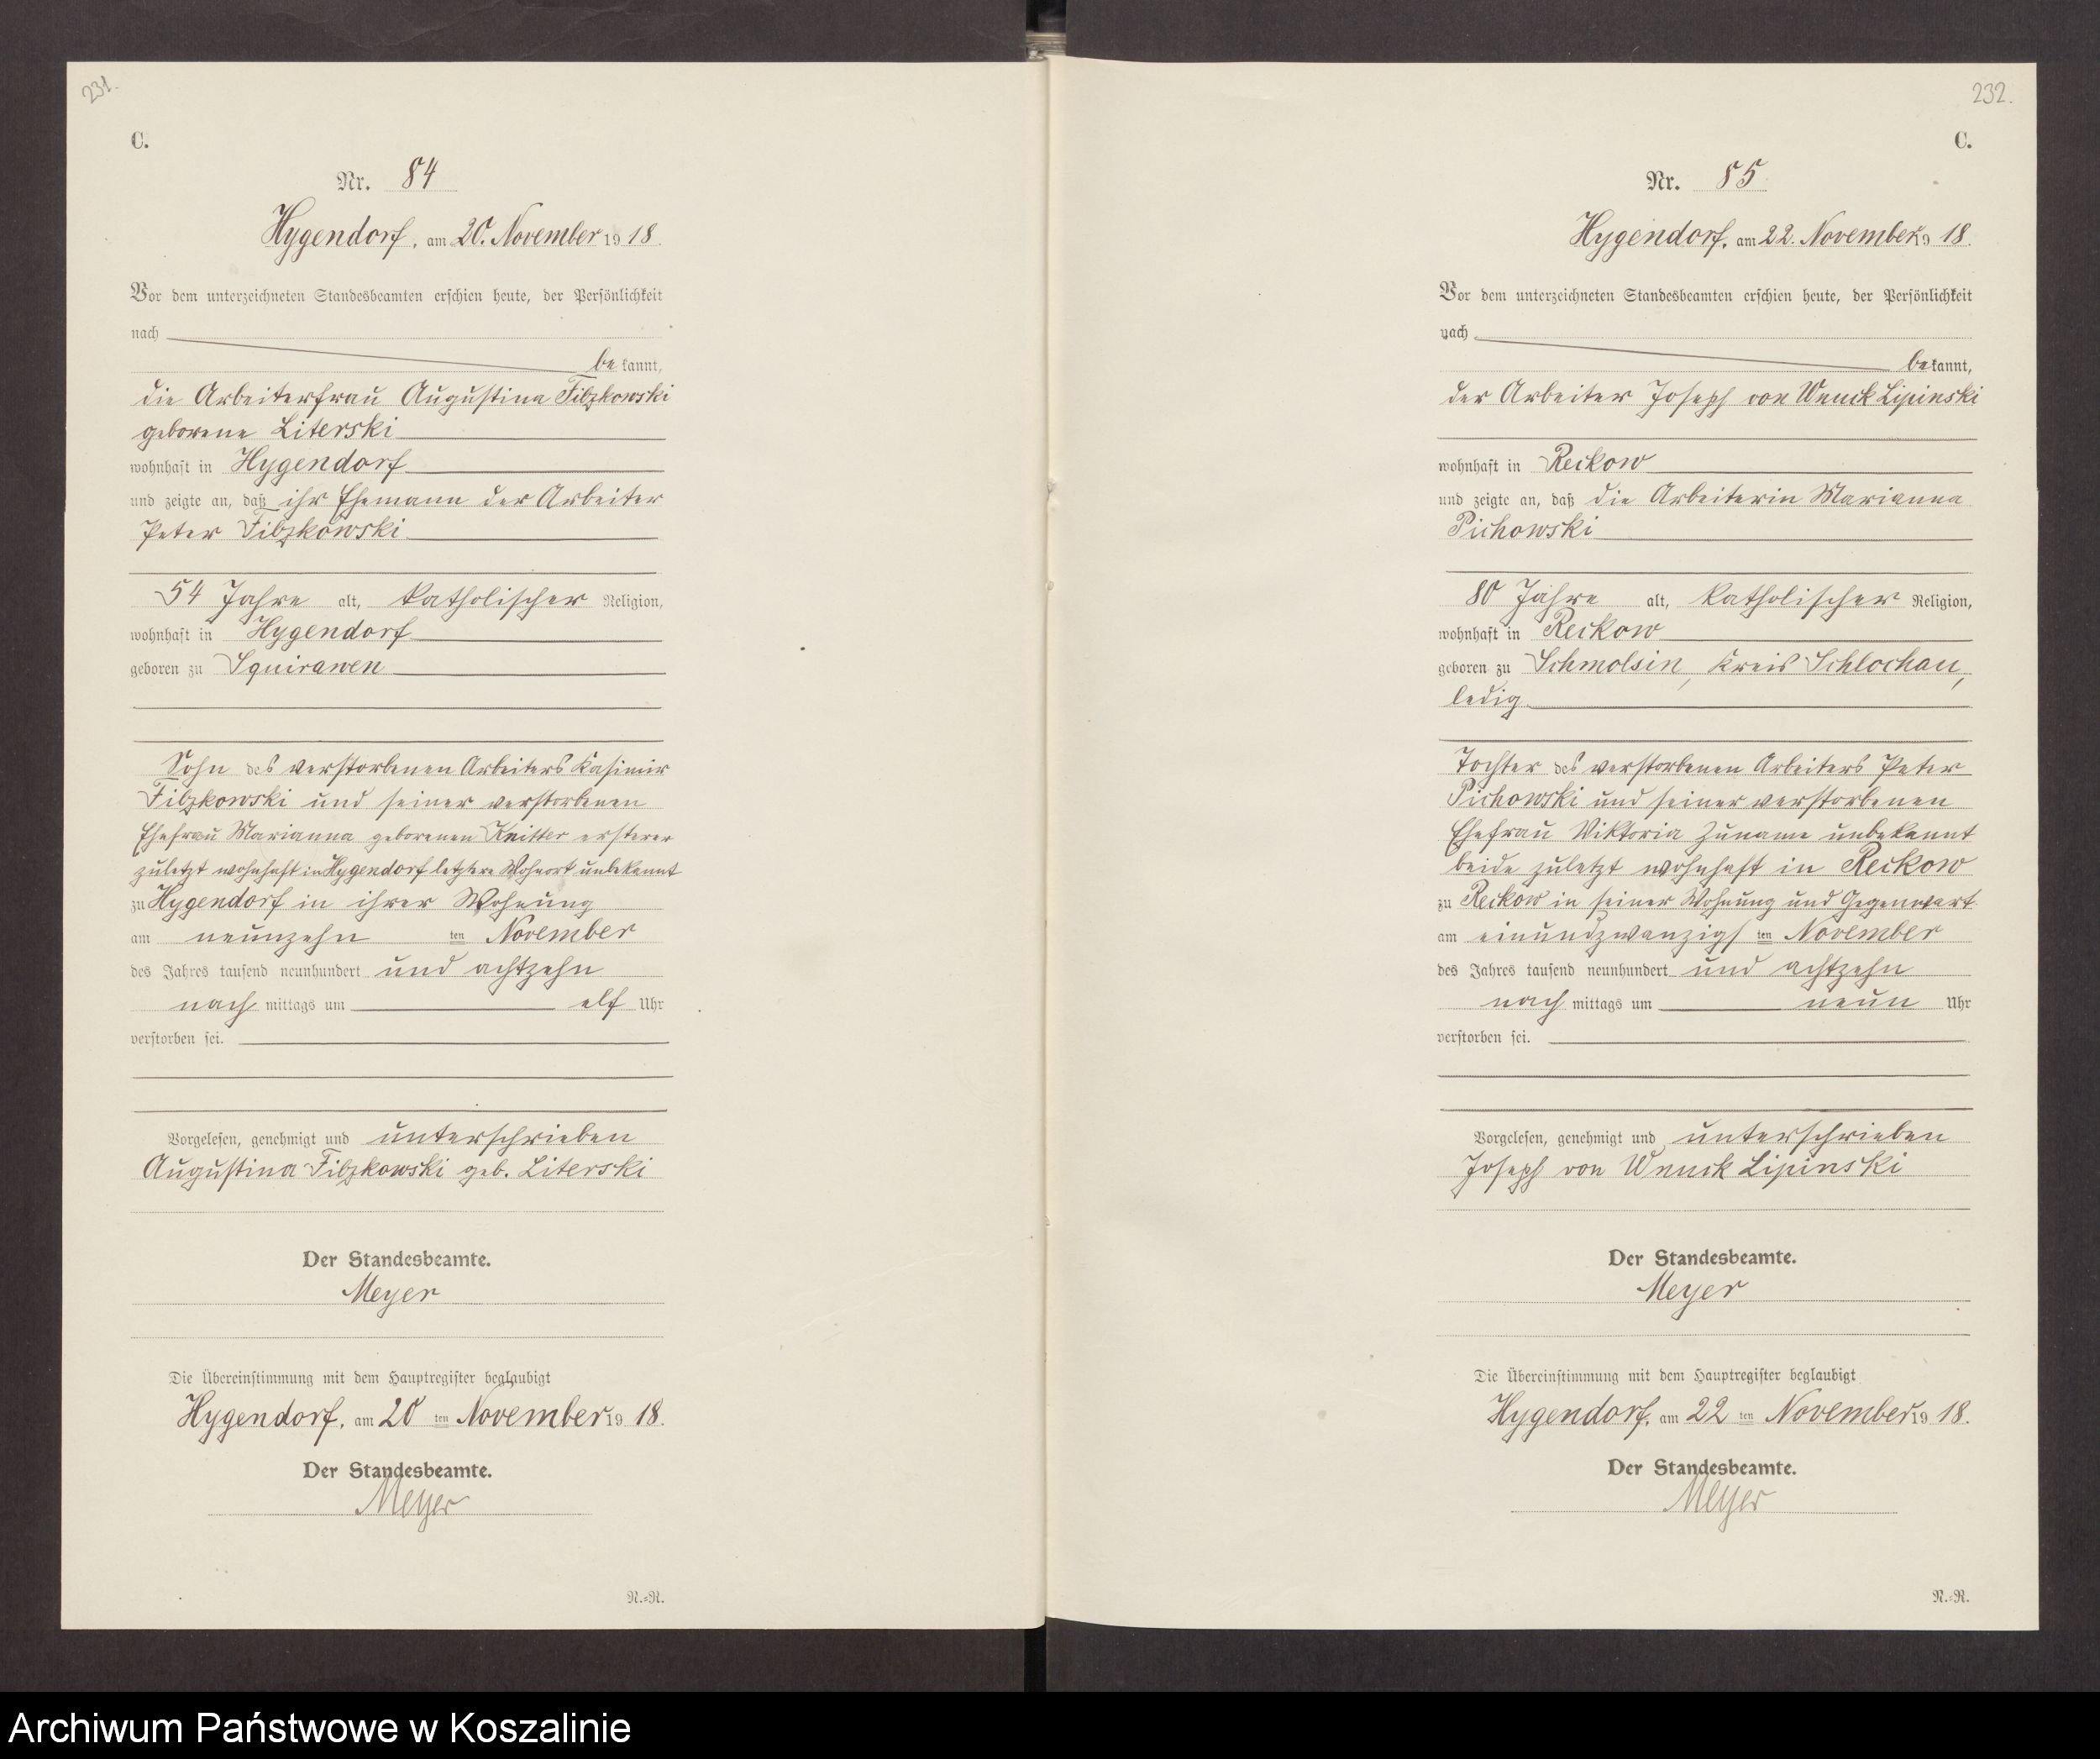 231.
C.
Nr. 84
Hygendorf, am 20. November 1918.
Vor dem unterzeichneten Standesbeamten erschien heute, der Persönlichkeit
nach
bekannt,
die Arbeiterfrau Augustina Fibzkowski
geborene Literski
wohnhaft in Hygendorf
und zeigte an, daß ihr Ehemann der Arbeiter
Peter Fibzkowski
54 Jahre alt, katholischer Religion,
wohnhaft in Hygendorf
geboren zu Squirawen
Sohn des verstorbenen Arbeiters Kasimir
Fibzkowski und seiner verstorbenen
Ehefrau Marianna geborenen Knitter ersterer
zuletzt wohnhaft in Hygendorf letztere Wohnort unbekannt
zu Hygendorf in ihrer Wohnung
am neunzehn ten November
des Jahres tausend neunhundert und achtzehn
nach mittags um elf Uhr
verstorben sei.
Vorgelesen, genehmigt und unterschrieben
Augustina Fibzkowski geb. Literski
Der Standesbeamte.
Meyer
Die Übereinstimmung mit dem Hauptregister beglaubigt
Hygendorf, am 20 ten November 1918.
Der Standesbeamte.
Meyer
N.=N.
232.
C.
Nr. 85
Hygendorf, am 22. November 1918.
Vor dem unterzeichneten Standesbeamten erschien heute, der Persönlichkeit
nach
bekannt,
der Arbeiter Joseph von Wnuck Lipinski
wohnhaft in Reckow
und zeigte an, daß die Arbeiterin Marianna
Pichowski
80 Jahre alt, katholischer Religion,
wohnhaft in Reckow
geboren zu Schmolsin, Kreis Schlochau,
ledig
Tochter des verstorbenen Arbeiters Peter
Pichowski und seiner verstorbenen
Ehefrau Viktoria Zuname unbekannt
beide zuletzt wohnhaft in Reckow
zu Reckow in seiner Wohnung und Gegenwart
am einundzwanzigs ten November
des Jahres tausend neunhundert und achtzehn
nach mittags um neun Uhr
verstorben sei.
Vorgelesen, genehmigt und unterschrieben
Joseph von Wnuck Lipinski
Der Standesbeamte.
Meyer
Die Übereinstimmung mit dem Hauptregister beglaubigt
Hygendorf, am 22 ten November 1918.
Der Standesbeamte.
Meyer
N.=N.
Archiwum Państwowe w Koszalinie